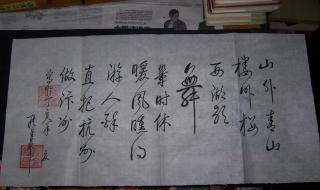 山外青山
楼外楼
西湖歌
舞
几时休
暖风熏得
游人醉
直把杭州
做汴州